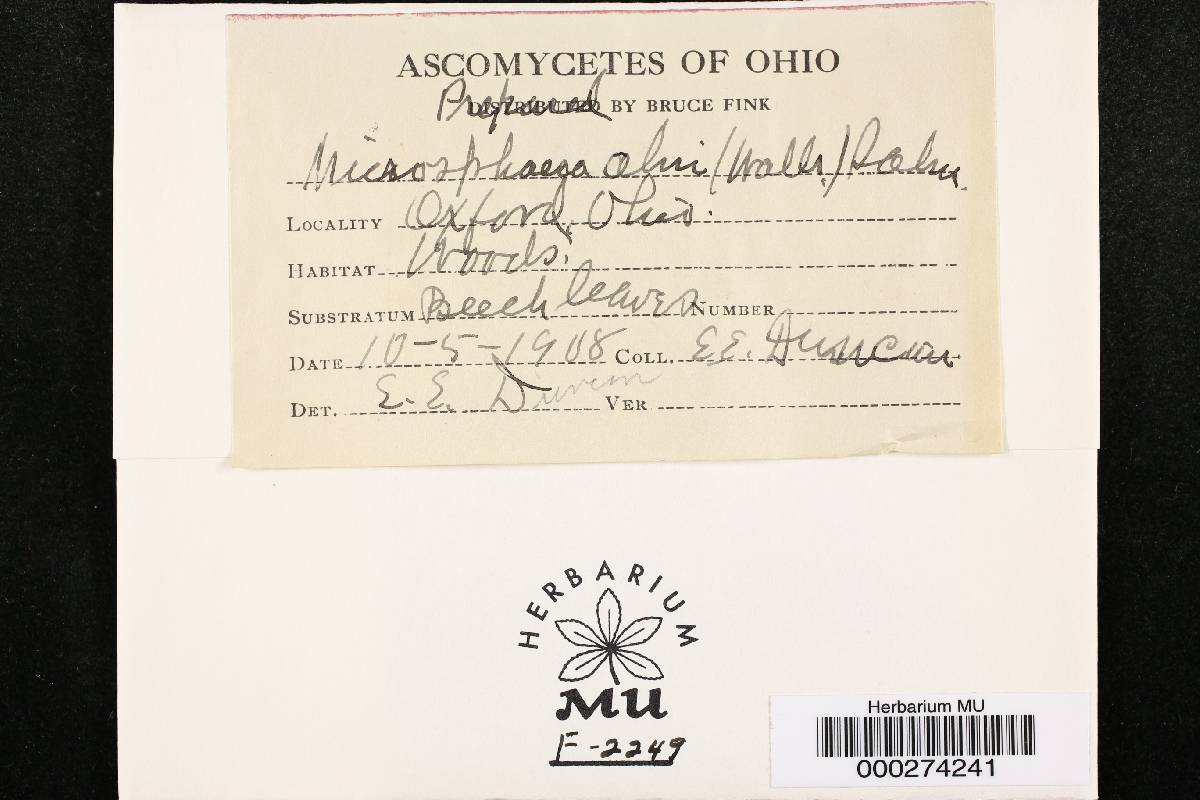 ASCOMYCETES OF OHIO
Prepared
DISTRIBUTED BY BRUCE FINK
Microsphaera alni (Wallr.) Salm.
LOCALITY Oxford, Ohio.
HABITAT Woods.
SUBSTRATUM Beech leaves NUMBER
DATE 10-5-1908 COLL. E.E. Duncan
DET. E. E. Duncan VER
HERBARIUM
MU
F-2249
Herbarium MU
000274241